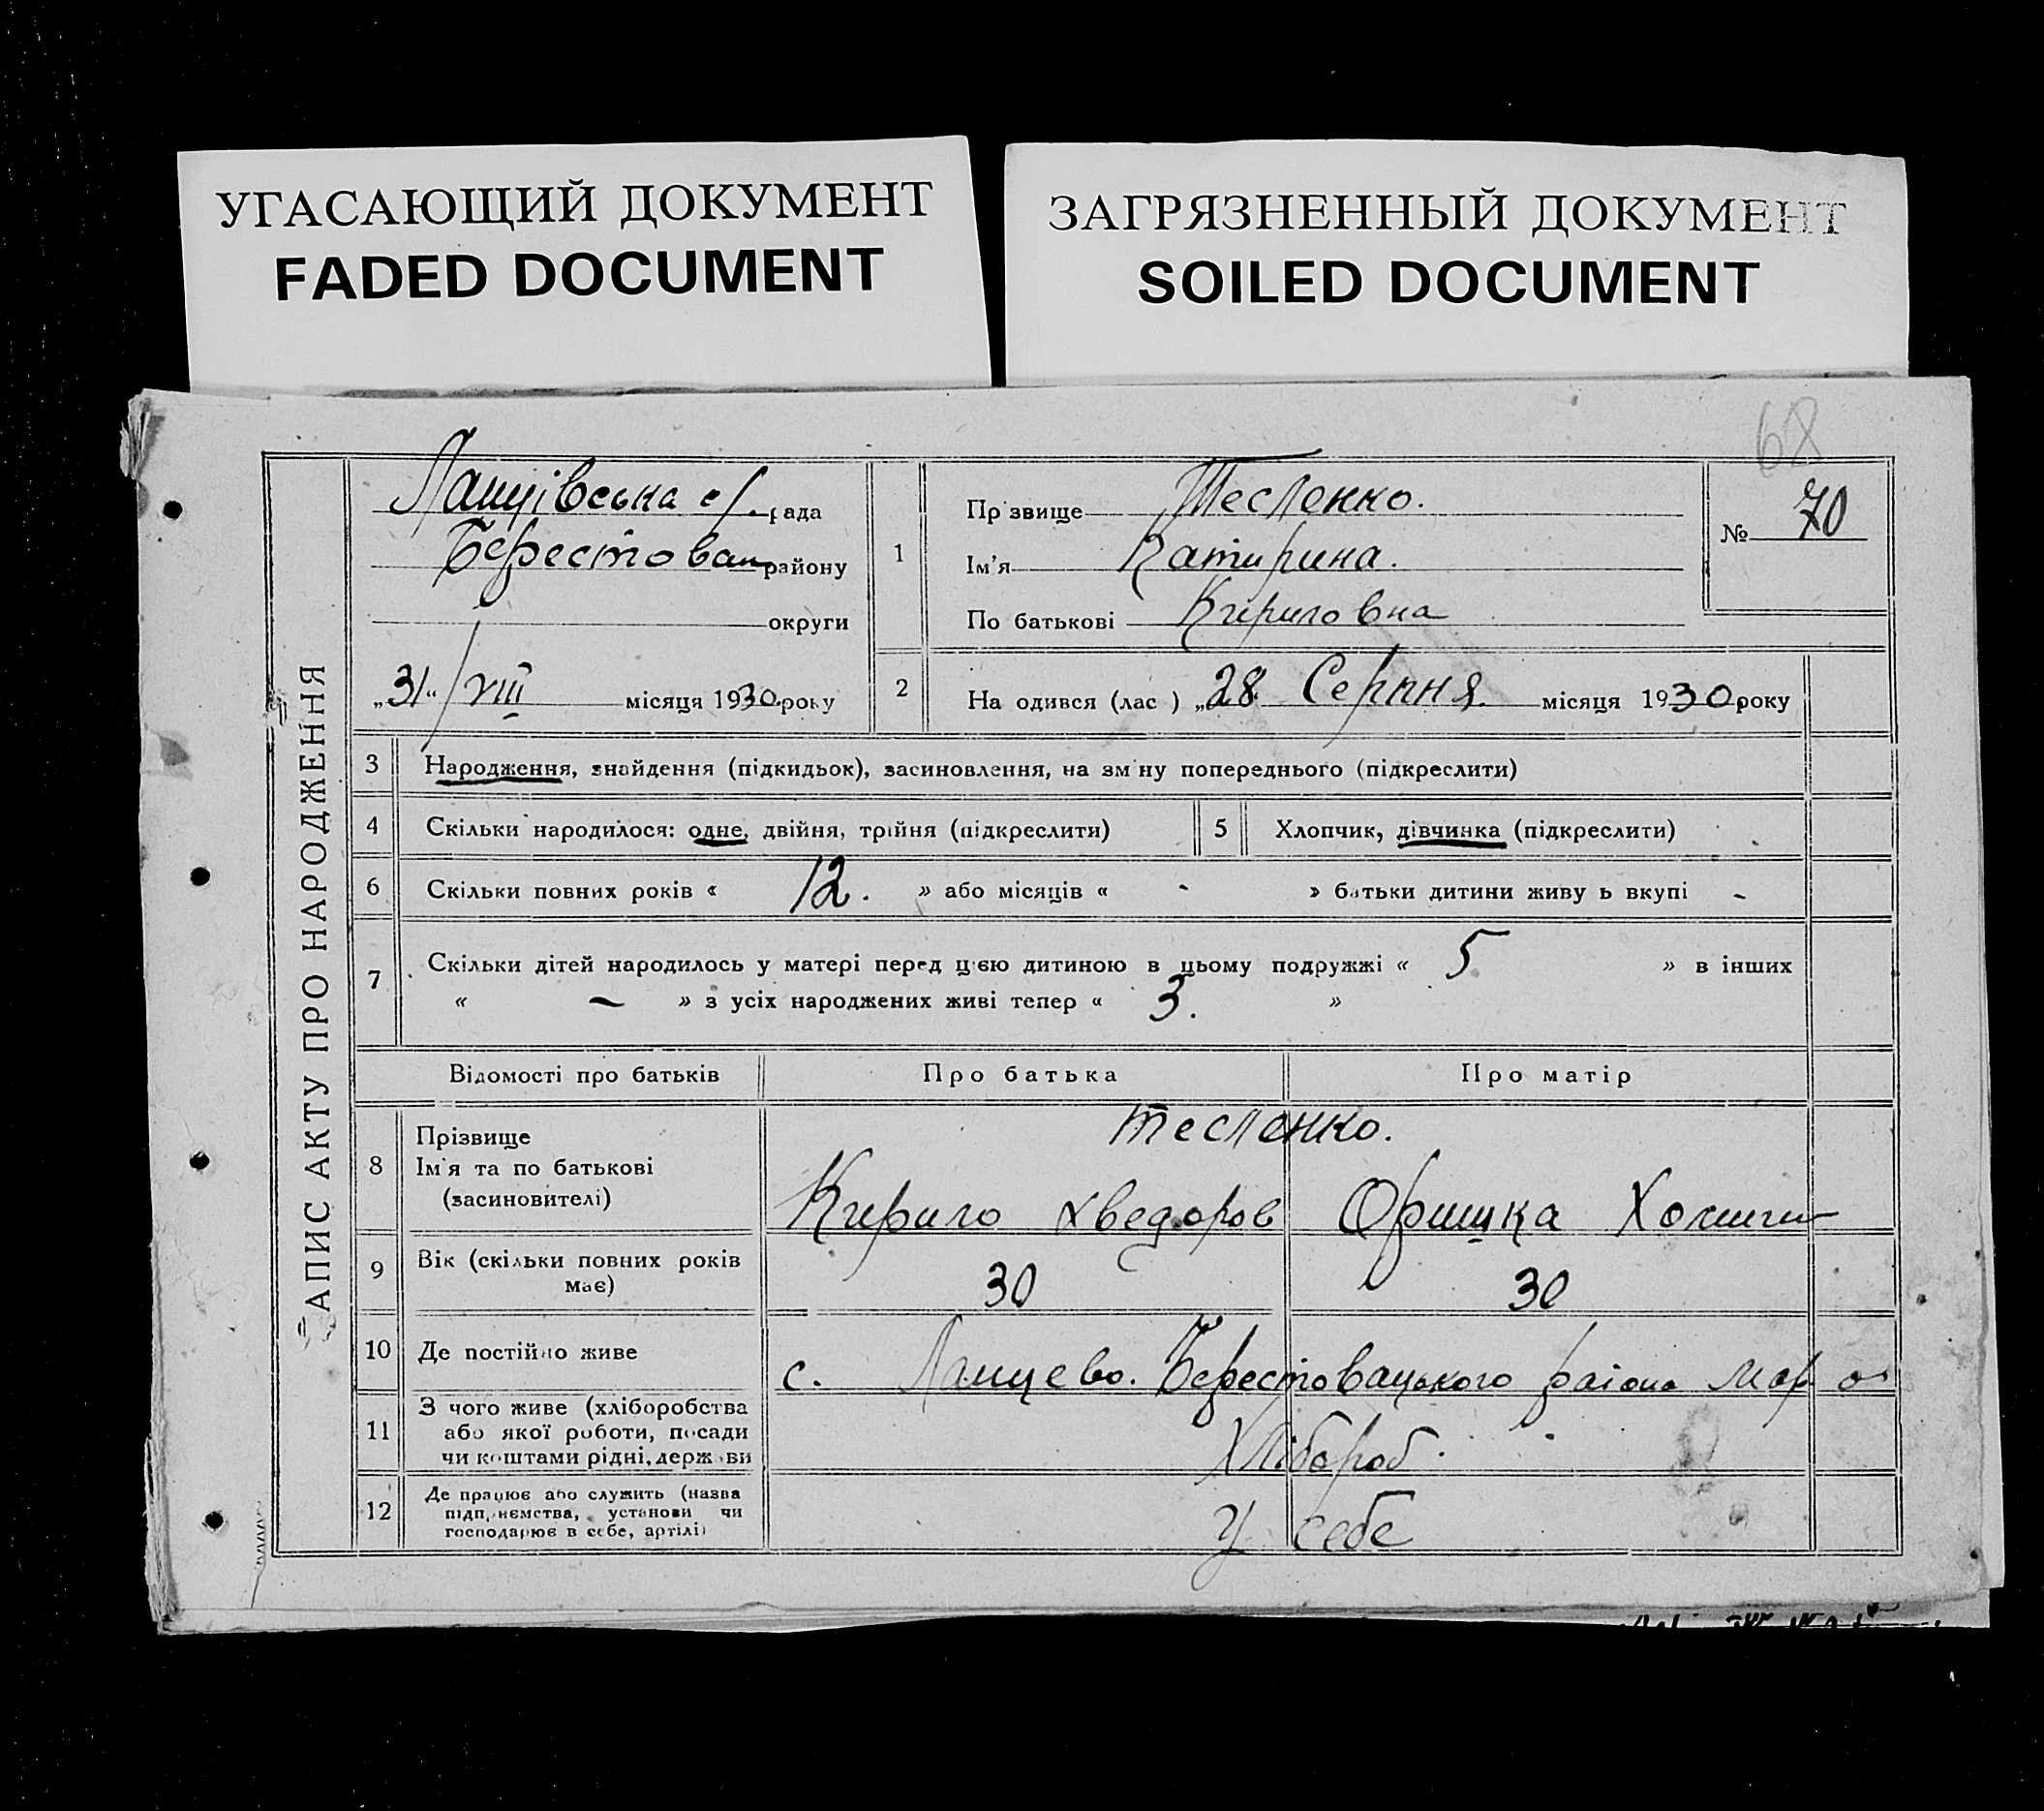 УГАСАЮЩИЙ ДОКУМЕНТ
FADED DOCUMENT
ЗАГРЯЗНЕННЫЙ ДОКУМЕНТ
SOILED DOCUMENT
68
АПИС АКТУ ПРО НАРОДЖЕННЯ
Ланцівська с/. рада
Берестован району
округи
„31“/VIII місяця 1930 року
1
Пр звище Тесленко.
Ім'я Катирина.
По батькові Кириловна
№ 70
2
На одився (лас ) „28 Серпня. місяця 1930 року
3 Народження, знайдення (підкидьок), засиновлення, на зм ну попереднього (підкреслити)
4 Скільки народилося: одне, двійня, трійня (підкреслити)
5 Хлопчик, дівчинка (підкреслити)
6 Скільки повних років « 12. » або місяців « - » батьки дитини живу ь вкупі -
7 Скільки дітей народилось у матері перед цією дитиною в цьому подружжі « 5 » в інших
« — » з усіх народжених живі тепер « 3. »
Відомості про батьків
Про батька
Про матір
8 Прізвище
Ім'я та по батькові
(засиновителі)
Тесленко.
Кирило Хведоров
Оришка
9 Вік (скільки повних років
має)
30
30
10 Де постійно живе
с. Ланцево. Берестовацького района
11 З чого живе (хліборобства
або якої роботи, посади
чи коштами рідні, держави
Хлібороб.
12 Де працює або служить (назва
підп,иємства, установи чи
господарює в себе, артілі)
У себе